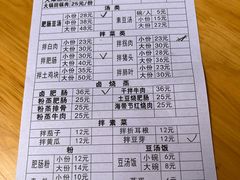 火锅肥肠 25元/份
汤类
肥肠豆汤 小份 28元 素豆汤 碗/人 5元
中份 38元 小份 23元
大份 48元 大份 33元
拌菜类
拌白肉 小份 28元 拌拐肉 小份 28元
大份 38元 大份 38元
拌肥肠 小份 30元 拌猪头 小份 28元
大份 45元 大份 38元
拌土鸡块 小份 30元 拌肝子
大份 50元
卤烧蒸
卤肥肠 36元 干拌牛肉 36元
粉蒸肥肠 25元 土豆烧肥肠 25元
粉蒸排骨 25元 海带芸红烧肉 25元
粉蒸牛肉 25元
拌素菜
拌茄子 12元 拌折耳根 12元
拌黄瓜 12元 拌豆芽 12元
粉 豆汤饭
肥肠粉 小份 12元 豆汤饭 小碗 6元
中份 14元 大碗 8元
大份